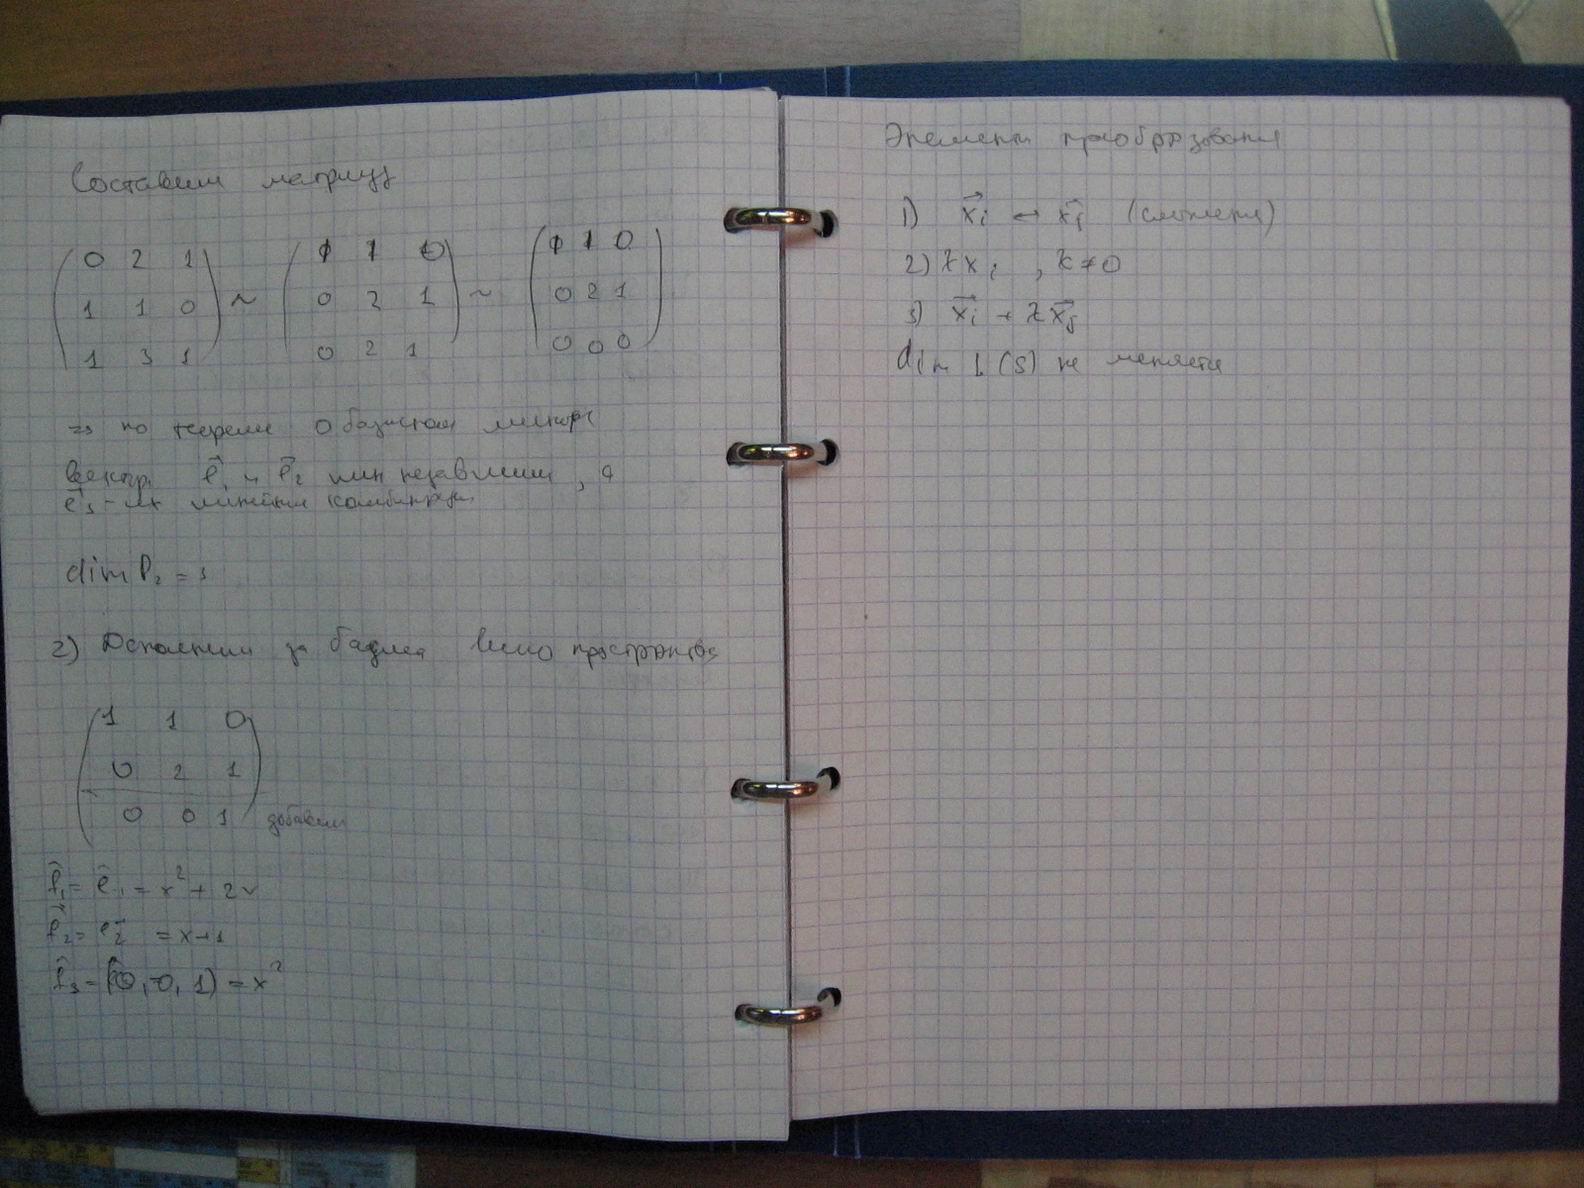 Составим матрицу
( 0 2 1 ) ~ ( 1 1 0 ) ~ ( 1 1 0 )
( 1 1 0 ) ( 0 2 1 ) ( 0 2 1 )
( 1 3 1 ) ( 0 2 1 ) ( 0 0 0 )
=> по теореме о базисном миноре
Вектор e₁ и e₂ лин независим, а
e₃ - их линейная комбинация
dim P₂ = 3
2) Дополним до базиса всего пространства
( 1 1 0 )
( 0 2 1 )
( 0 0 1 ) добавим
f₁ = e₁ = x² + 2x
f₂ = e₂ = x+1
f₃ = (0, 0, 1) = x²
Элемент преобразования
1) x⃗ᵢ ↔ x⃗ⱼ
2) λxᵢ , λ≠0
3) x⃗ᵢ + λx⃗ⱼ
dim L(S) не меняется